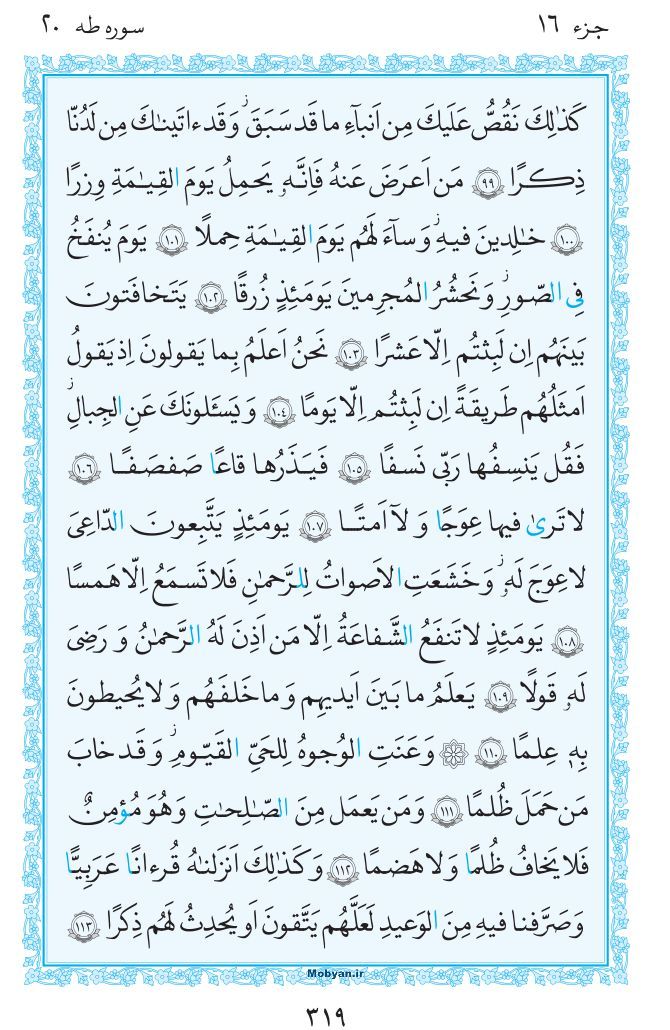 جزء ١٦
سوره طه ٢٠
كَذٰلِكَ نَقُصُّ عَلَيكَ مِن اَنبآءِ ما قَد سَبَقَ ۚ وَقَد ءاتَينٰكَ مِن لَدُنّا
ذِكرًا ٩٩ مَن اَعرَضَ عَنهُ فَاِنَّهٗ يَحمِلُ يَومَ القِيٰمَةِ وِزرًا
١٠٠ خٰلِدينَ فيهِ ۖ وَسآءَ لَهُم يَومَ القِيٰمَةِ حِملًا ١٠١ يَومَ يُنفَخُ
فِى الصّورِ ۚ وَنَحشُرُ المُجرِمينَ يَومَئِذٍ زُرقًا ١٠٢ يَتَخافَتونَ
بَينَهُم اِن لَبِثتُم اِلّا عَشرًا ١٠٣ نَحنُ اَعلَمُ بِما يَقولونَ اِذ يَقولُ
اَمثَلُهُم طَريقَةً اِن لَبِثتُم اِلّا يَومًا ١٠٤ وَيَسـَٔلونَكَ عَنِ الجِبالِ
فَقُل يَنسِفُها رَبّى نَسفًا ١٠٥ فَيَذَرُها قاعًا صَفصَفًا ١٠٦
لا تَرىٰ فيها عِوَجًا وَلآ اَمتًا ١٠٧ يَومَئِذٍ يَتَّبِعونَ الدّاعِىَ
لا عِوَجَ لَهٗ ۖ وَخَشَعَتِ الاَصواتُ لِلرَّحمٰنِ فَلا تَسمَعُ اِلّا هَمسًا
١٠٨ يَومَئِذٍ لا تَنفَعُ الشَّفاعَةُ اِلّا مَن اَذِنَ لَهُ الرَّحمٰنُ وَرَضِىَ
لَهٗ قَولًا ١٠٩ يَعلَمُ ما بَينَ اَيديهِم وَما خَلفَهُم وَلا يُحيطونَ
بِهٖ عِلمًا ١١٠ ۞ وَعَنَتِ الوُجوهُ لِلحَىِّ القَيّومِ ۖ وَقَد خابَ
مَن حَمَلَ ظُلمًا ١١١ وَمَن يَعمَل مِنَ الصّٰلِحٰتِ وَهُوَ مُؤمِنٌ
فَلا يَخافُ ظُلمًا وَلا هَضمًا ١١٢ وَكَذٰلِكَ اَنزَلنٰهُ قُرءانًا عَرَبِيًّا
وَصَرَّفنا فيهِ مِنَ الوَعيدِ لَعَلَّهُم يَتَّقونَ اَو يُحدِثُ لَهُم ذِكرًا ١١٣
Mobyan.ir
٣١٩